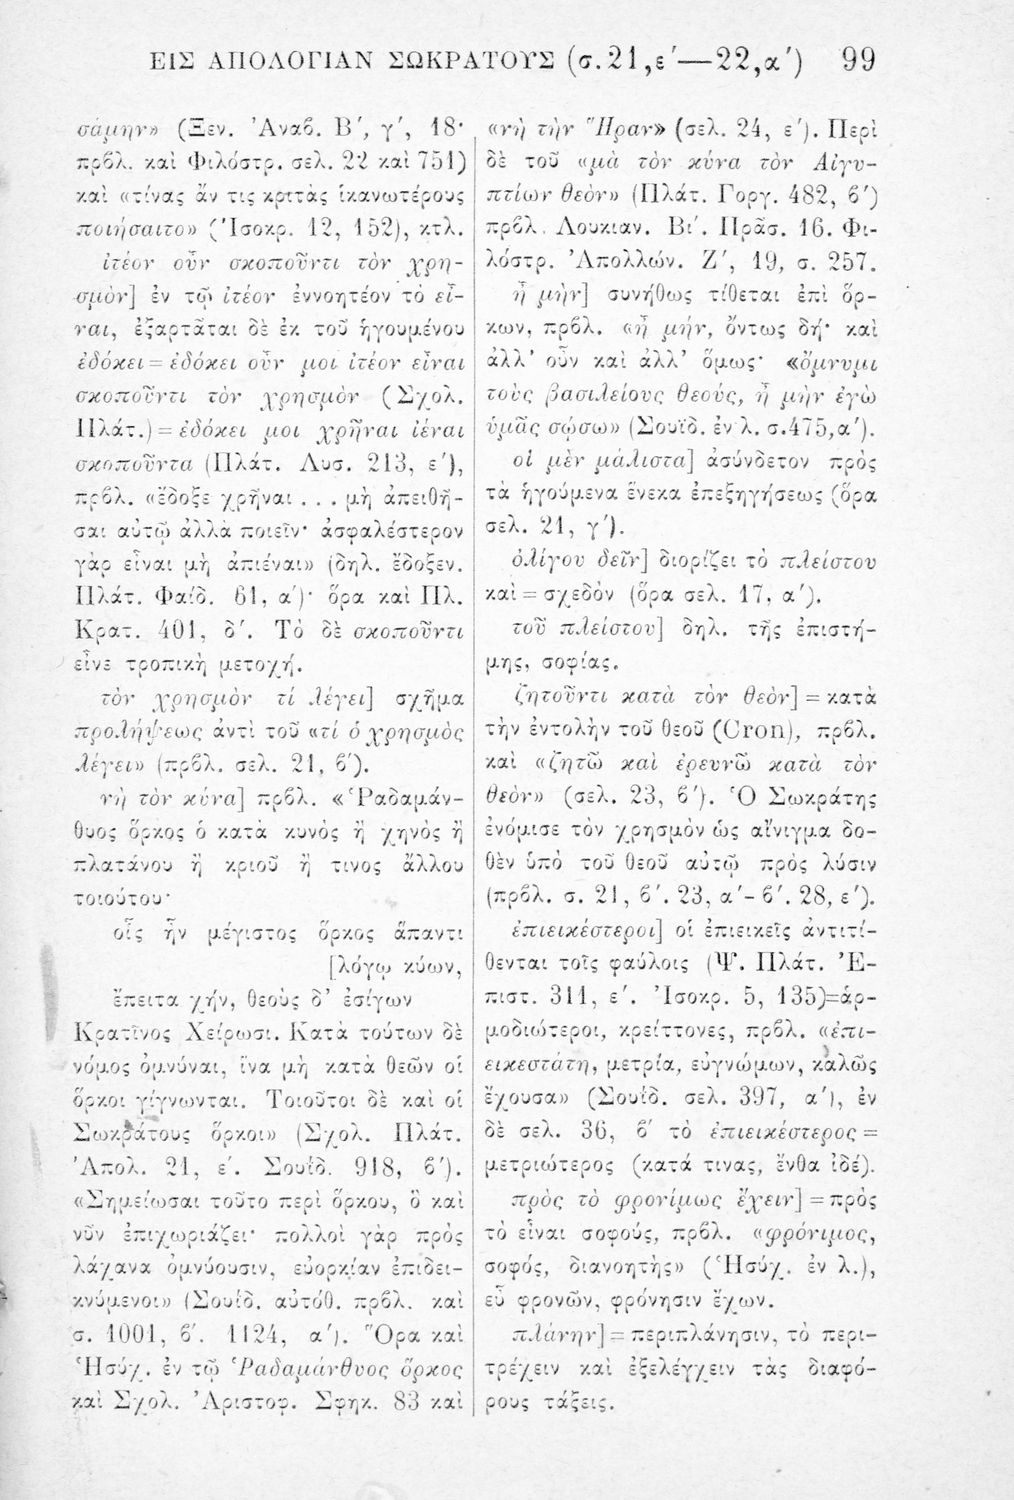 ΕΙΣ ΑΠΟΛΟΓΙΑΝ ΣΩΚΡΑΤΟΥΣ (σ. 21,ε΄—22,α΄) 99
σάμην» (Ξεν. Ἀναβ. Β΄, γ΄, 18·
πρβλ. καὶ Φιλόστρ. σελ. 22 καὶ 751)
καὶ «τίνας ἄν τις κριτὰς ἱκανωτέρους
ποιήσαιτο» (Ἰσοκρ. 12, 152), κτλ.
ἰτέον οὖν σκοποῦντι τὸν χρη-
σμὸν] ἐν τῷ ἰτέον ἐννοητέον τὸ εἶ-
ναι, ἐξαρτᾶται δὲ ἐκ τοῦ ἡγουμένου
ἐδόκει = ἐδόκει οὖν μοι ἰτέον εἶναι
σκοποῦντι τὸν χρησμὸν (Σχολ.
Πλάτ.) = ἐδόκει μοι χρῆναι ἰέναι
σκοποῦντα (Πλάτ. Λυσ. 213, ε΄),
πρβλ. «ἔδοξε χρῆναι . . . μὴ ἀπειθῆ-
σαι αὐτῷ ἀλλὰ ποιεῖν· ἀσφαλέστερον
γὰρ εἶναι μὴ ἀπιέναι» (δηλ. ἔδοξεν.
Πλάτ. Φαίδ. 61, α΄)· ὅρα καὶ Πλ.
Κρατ. 401, δ΄. Τὸ δὲ σκοποῦντι
εἶνε τροπικὴ μετοχή.
τὸν χρησμὸν τί λέγει] σχῆμα
προλήψεως ἀντὶ τοῦ «τί ὁ χρησμὸς
λέγει» (πρβλ. σελ. 21, β΄).
νὴ τὸν κύνα] πρβλ. «Ῥαδαμάν-
θυος ὅρκος ὁ κατὰ κυνὸς ἢ χηνὸς ἢ
πλατάνου ἢ κριοῦ ἤ τινος ἄλλου
τοιούτου·
οἷς ἦν μέγιστος ὅρκος ἅπαντι
[λόγῳ κύων,
ἔπειτα χήν, θεοὺς δ' ἐσίγων
Κρατῖνος Χείρωσι. Κατὰ τούτων δὲ
νόμος ὀμνύναι, ἵνα μὴ κατὰ θεῶν οἱ
ὅρκοι γίγνωνται. Τοιοῦτοι δὲ καὶ οἱ
Σωκράτους ὅρκοι» (Σχολ. Πλάτ.
Ἀπολ. 21, ε΄. Σουΐδ. 918, β΄).
«Σημείωσαι τοῦτο περὶ ὅρκου, ὃ καὶ
νῦν ἐπιχωριάζει· πολλοὶ γὰρ πρὸς
λάχανα ὀμνύουσιν, εὐορκίαν ἐπιδει-
κνύμενοι» (Σουΐδ. αὐτόθ. πρβλ. καὶ
σ. 1001, β΄. 1124, α΄). Ὅρα καὶ
Ἡσύχ. ἐν τῷ Ῥαδαμάνθυος ὅρκος
καὶ Σχολ. Ἀριστοφ. Σφηκ. 83 καὶ
«νὴ τὴν Ἥραν» (σελ. 24, ε΄). Περὶ
δὲ τοῦ «μὰ τὸν κύνα τὸν Αἰγυ-
πτίων θεὸν» (Πλάτ. Γοργ. 482, β΄)
πρβλ. Λουκιαν. Βί. Πρᾶσ. 16. Φι-
λόστρ. Ἀπολλών. Ζ΄, 19, σ. 257.
ἦ μὴν] συνήθως τίθεται ἐπὶ ὅρ-
κων, πρβλ. «ἦ μήν, ὄντως δή· καὶ
ἀλλ' οὖν καὶ ἀλλ' ὅμως· «ὄμνυμι
τοὺς βασιλείους θεούς, ἦ μὴν ἐγὼ
ὑμᾶς σῴσω» (Σουΐδ. ἐν λ. σ. 475,α΄).
οἱ μὲν μάλιστα] ἀσύνδετον πρὸς
τὰ ἡγούμενα ἕνεκα ἐπεξηγήσεως (ὅρα
σελ. 21, γ΄).
ὀλίγου δεῖν] διορίζει τὸ πλείστου
καὶ = σχεδὸν (ὅρα σελ. 17, α΄).
τοῦ πλείστου] δηλ. τῆς ἐπιστή-
μης, σοφίας.
ζητοῦντι κατὰ τὸν θεὸν] = κατὰ
τὴν ἐντολὴν τοῦ θεοῦ (Cron), πρβλ.
καὶ «ζητῶ καὶ ἐρευνῶ κατὰ τὸν
θεὸν» (σελ. 23, β΄). Ὁ Σωκράτης
ἐνόμισε τὸν χρησμὸν ὡς αἴνιγμα δο-
θὲν ὑπὸ τοῦ θεοῦ αὐτῷ πρὸς λύσιν
(πρβλ. σ. 21, β΄. 23, α΄-β΄. 28, ε΄).
ἐπιεικέστεροι] οἱ ἐπιεικεῖς ἀντιτί-
θενται τοῖς φαύλοις (Ψ. Πλάτ. Ἐ-
πιστ. 311, ε΄. Ἰσοκρ. 5, 135)=ἁρ-
μοδιώτεροι, κρείττονες, πρβλ. «ἐπι-
εικεστάτη, μετρία, εὐγνώμων, καλῶς
ἔχουσα» (Σουΐδ. σελ. 397, α΄), ἐν
δὲ σελ. 36, β΄ τὸ ἐπιεικέστερος =
μετριώτερος (κατά τινας, ἔνθα ἰδέ).
πρὸς τὸ φρονίμως ἔχειν] = πρὸς
τὸ εἶναι σοφούς, πρβλ. «φρόνιμος,
σοφός, διανοητὴς» (Ἡσύχ. ἐν λ.),
εὖ φρονῶν, φρόνησιν ἔχων.
πλάνην] = περιπλάνησιν, τὸ περι-
τρέχειν καὶ ἐξελέγχειν τὰς διαφό-
ρους τάξεις.